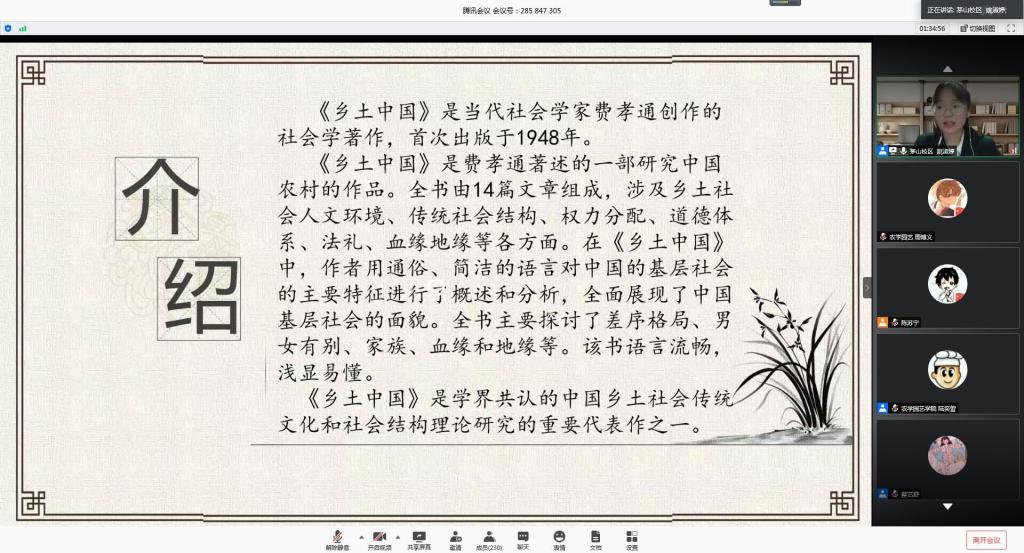 腾讯会议 会议号：285 847 305
正在讲话: 茅山校区
01:34:56
切换视图
介
绍
《乡土中国》是当代社会学家费孝通创作的
社会学著作，首次出版于1948年。
《乡土中国》是费孝通著述的一部研究中国
农村的作品。全书由14篇文章组成，涉及乡土社
会人文环境、传统社会结构、权力分配、道德体
系、法礼、血缘地缘等各方面。在《乡土中国》
中，作者用通俗、简洁的语言对中国的基层社会
的主要特征进行了概述和分析，全面展现了中国
基层社会的面貌。全书主要探讨了差序格局、男
女有别、家族、血缘和地缘等。该书语言流畅，
浅显易懂。
《乡土中国》是学界共认的中国乡土社会传统
文化和社会结构理论研究的重要代表作之一。
茅山校区
农学园艺
农学园艺学院
解除静音
开启视频
共享屏幕
邀请
成员(230)
聊天
表情
文档
设置
离开会议